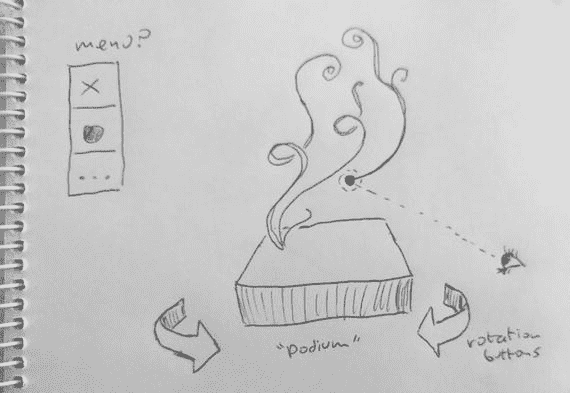 menu?
"podium"
rotation
buttons